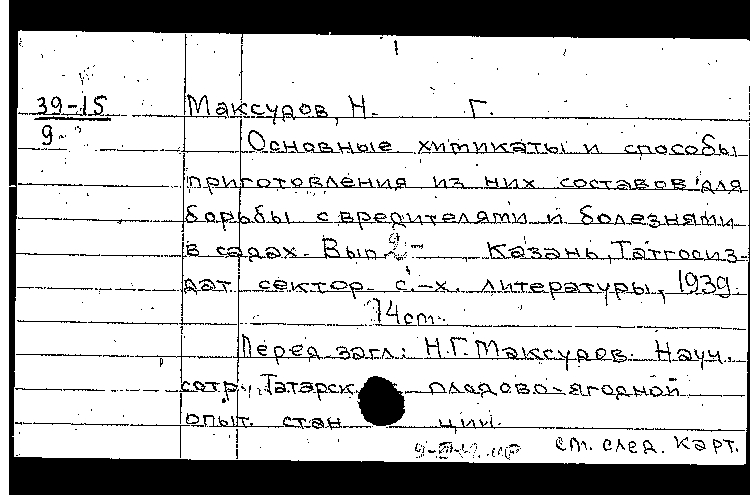 39-15
9-
Максудов, Н. Г.
Основные химикаты и способы
приготовления из них составов для
борьбы с вредителями и болезнями
в садах. Вып. 2- Казань, Татгосиз-
дат. сектор с.-х. литературы, 1939.
14 ст.
Перед загл.: Н.Г. Максудов. Науч.
сотр. Татарск плодово-ягодной
опыт. стан ции.
см. след. карт.